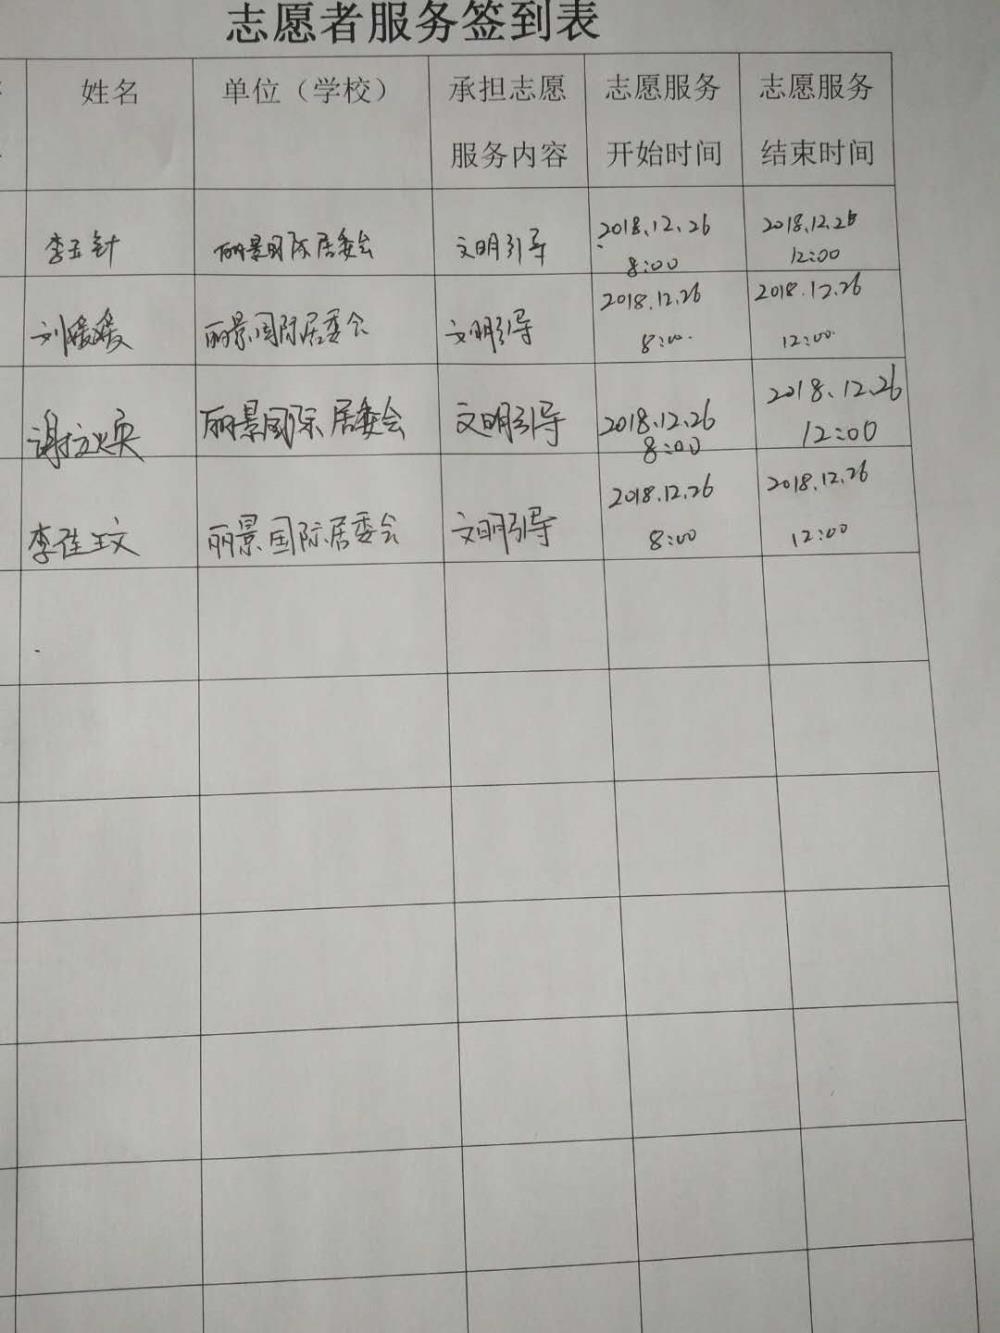 志愿者服务签到表
姓名 单位（学校） 承担志愿 志愿服务 志愿服务
服务内容 开始时间 结束时间
李玉针 丽景国际居委会 文明引导 2018.12.26 2018.12.26
8:00 12:00
刘媛媛 丽景国际居委会 文明引导 2018.12.26 2018.12.26
8:00 12:00
丽景国际居委会 文明引导 2018.12.26 2018.12.26
8:00 12:00
李佳文 丽景国际居委会 文明引导 2018.12.26 2018.12.26
8:00 12:00